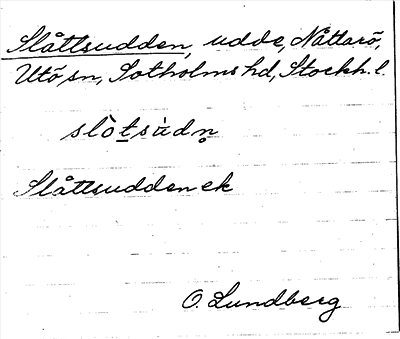 Slåttsudden, udde, Nåttarö,
Utö sn, Sotholms hd, Stockh. l.
slòtsùdn̥
Slåttsudden ek
O. Lundberg